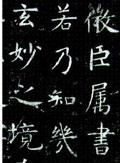 微臣属書
若乃知幾
玄妙之境